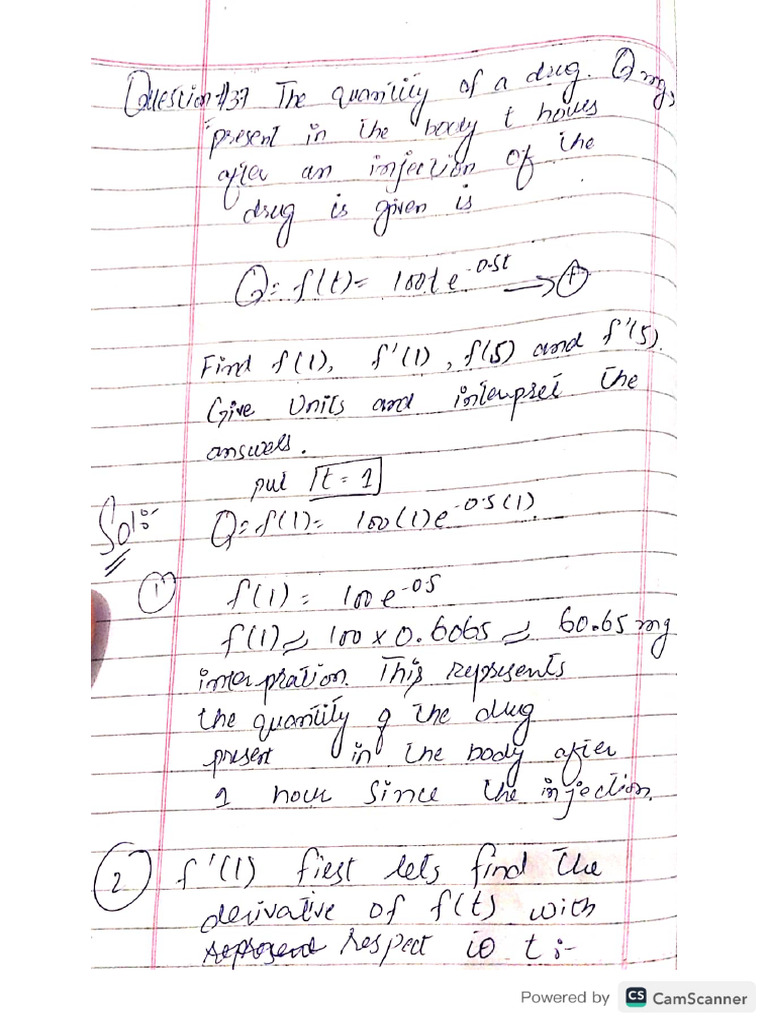 Question#37 The quantity of a drug. Q mg,
present in the body t hours
after an injection of the
drug is given is
Q = f(t) = 100te^-0.5t → ①
Find f(1), f'(1), f(5) and f'(5).
Give Units and interpret the
answers.
put t = 1
Sol:-
Q = f(1) = 100(1)e^-0.5(1)
① f(1) = 100e^-0.5
f(1) = 100 x 0.6065 = 60.65 mg
interpration. This represents
the quantity of the drug
present in the body after
1 hour Since the injection.
② f'(1) first lets find the
derivative of f(t) with
respect to t :-
Powered by CS CamScanner